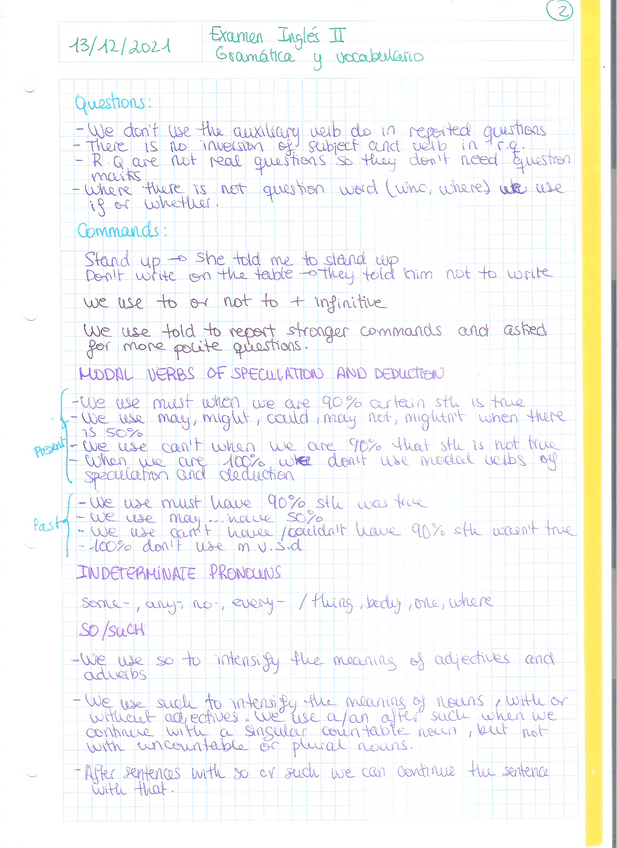 2
13/12/2021
Examen Inglés II
Gramática y vocabulario
Questions:
- We don't use the auxiliary verb do in reported questions
- There is no inversion of subject and verb in r.q.
- R.Q are not real questions so they don't need question
marks.
- Where there is not question word (who, where) we use
if or whether.
Commands:
Stand up → She told me to stand up
Don't write on the table → they told him not to write
We use to or not to + infinitive
We use told to report stronger commands and asked
for more polite questions.
MODAL VERBS OF SPECULATION AND DEDUCTION
Present
- We use must when we are 90% certain sth is true
- We use may, might, could, may not, mightn't when there
is 50%
- We use can't when we are 90% that sth is not true
- When we are 100% we don't use modal verbs of
speculation and deduction
Past
- We use must have 90% sth was true
- We use may...have 50%
- We use can't have /couldn't have 90% sth wasn't true
- 100% don't use m.v.s.d
INDETERMINATE PRONOUNS
some-, any-, no-, every- / thing, body, one, where
SO/SUCH
- We use so to intensify the meaning of adjectives and
adverbs
- We use such to intensify the meaning of nouns, with or
without adjectives. We use a/an after such when we
continue with a singular countable noun, but not
with uncountable or plural nouns.
- After sentences with so or such we can continue the sentence
with that.